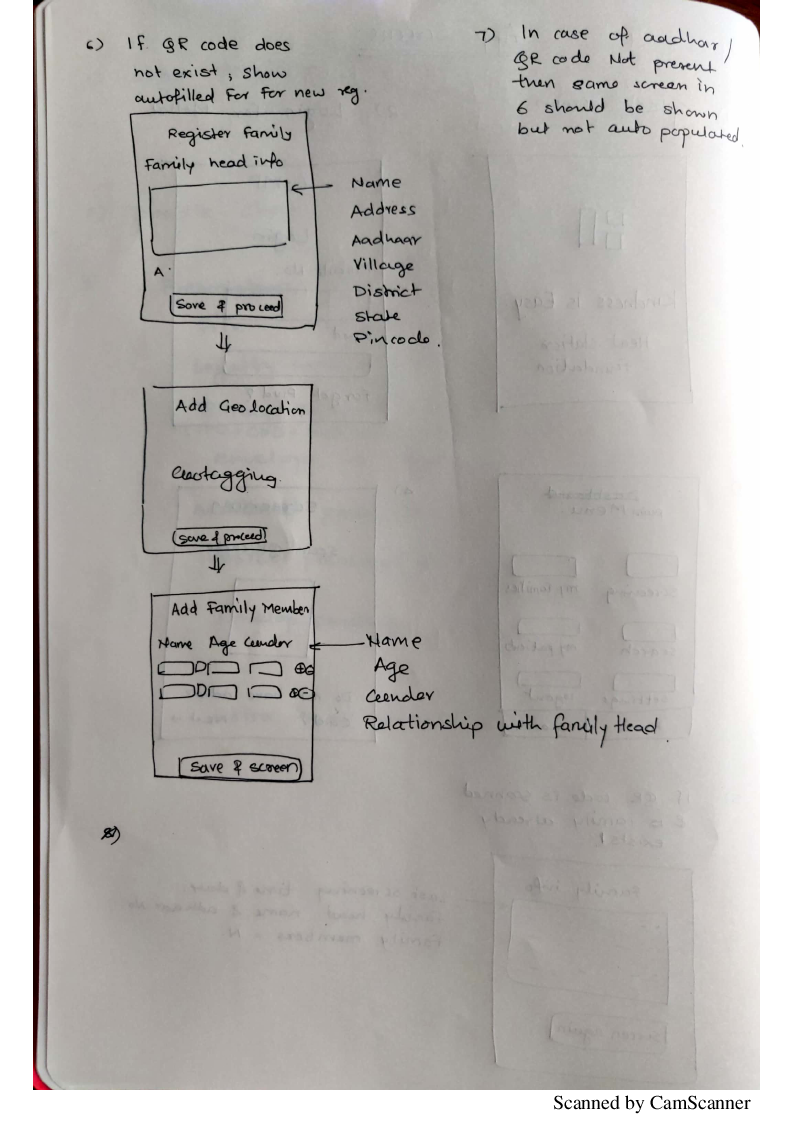 6) If QR code does
not exist, show
autofilled for for new reg.
Register Family
Family head info
Name
Address
Aadhaar
Village
District
State
Pincode.
A.
Save & proceed
Add Geo location
Geotagging.
Save & proceed
Add Family Member
Name Age Gender
Name
Age
Gender
Relationship with family Head.
Save & screen
8)
7) In case of aadhar/
QR code Not present
then same screen in
6 should be shown
but not auto populated.
Scanned by CamScanner